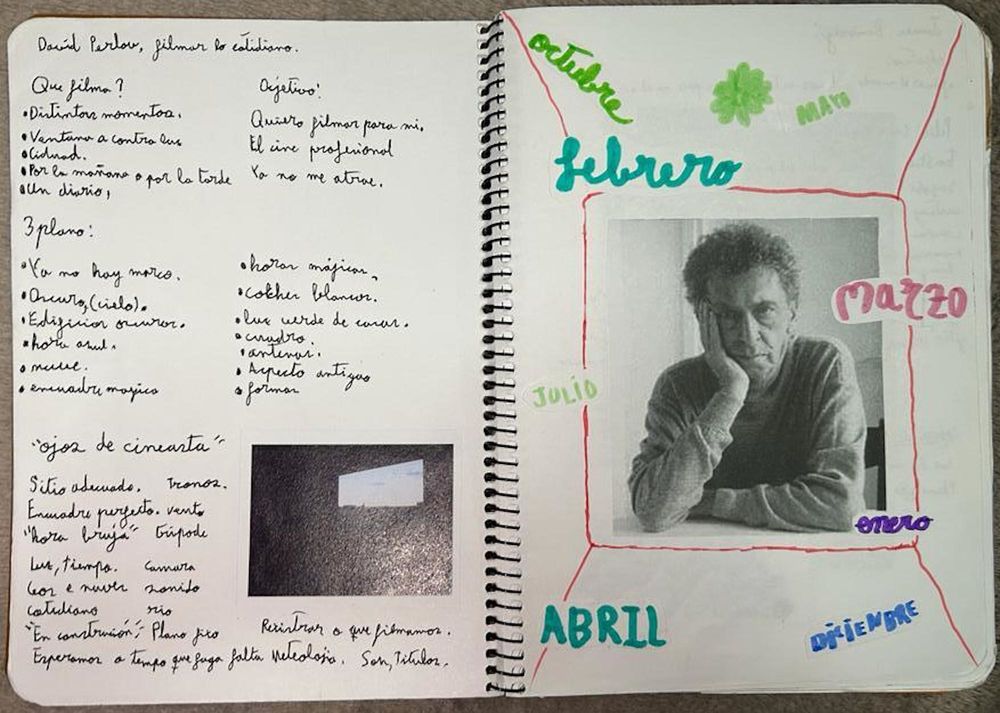 David Perlov, filmar lo cotidiano.
Que filma?
• Distintos momentos.
• Ventana a contra luz
• Ciduad.
• Por la mañana o por la tarde
• Un diario,
Ojetivo:
Quiero filmar para mi.
El cine profesional
Ya no me atrae.
3 plano:
• Ya no hay marco.
• Oscuro, (cielo).
• Edificios oscuros.
• hora azul.
• nuve.
• encuadre magico
• horas májicas,
• coches blancos.
• luz verde de casas.
• cuadro.
• antenas.
• Aspecto antiguo
• formas
"ojos de cineasta"
Sitio adecuado.
Encuadre perfecto.
"hora bruja"
Luz, tiempo.
e nuves
cotidiano
"En construción",
vento
tripode
camara
sonido
rio
Plano fixo
Rexistrar o que filmamos.
Esperamos o tempo que faga falta Son, Titulos.
octubre
MAYO
febrero
MARZO
JULIO
enero
ABRIL
DICIEMBRE